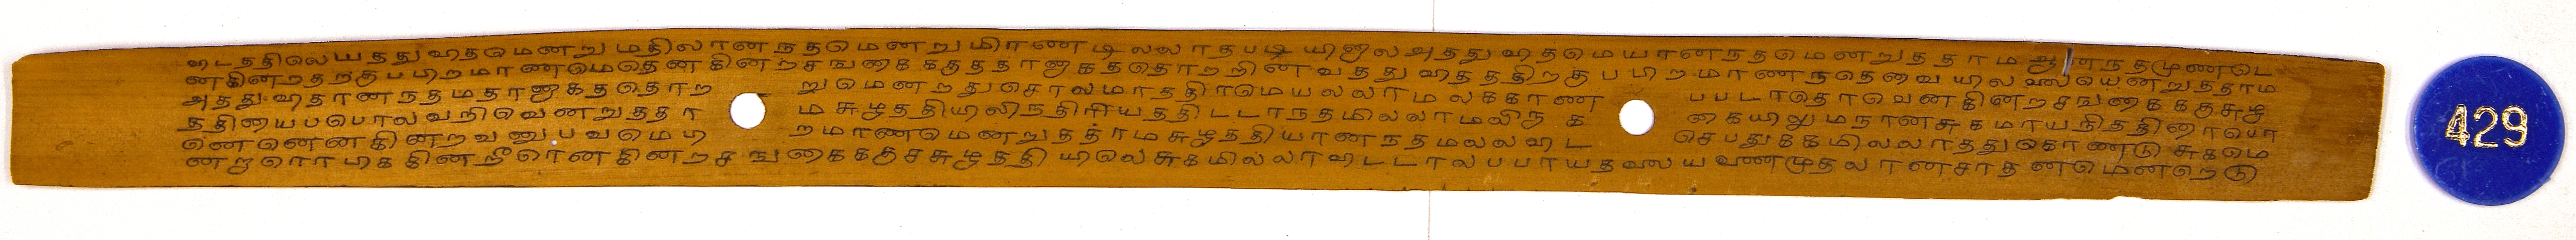 டைததிலெயததுவதமெனறு மதிலானநதமெனறு மிரணடிலலாதபடியினலஅததுவதமெயானநதமெனறுததாம ஆனநதமுணடெ
னகினறதறகு பபிறமாணமெதெனகினறசஙகைககுததானகததொறறினவததுவதததிறகு பபிறமாணநதெவையிலலையெனறுததாம
அததுவதானநதமதானகததொற றுமெனறதுசொலமாததிரமெயலலாமலககாண பபடாதொவெனகினறசஙகைககுசுழு
ததியைபபொலவறிவெனறுததா ம சுழுததியிலிநதிரியததிடடாநதமிலலாமலிருக கையிலுமநானசுகமாயநிததிரைபொ
னெனெனகினறவனுபவமெபி றமாணமெனறுததாமசுழுததியானநதமலலவிட செபதுககமிலலாததுகொணடு சுகமெ
னறுரொபிககினறீரெனகினறசஙகைககுசசுழுததியிலெசுகமிலலாவிடடாலபபாயதலையணைமுதலானசாதனமெனறெடு
429